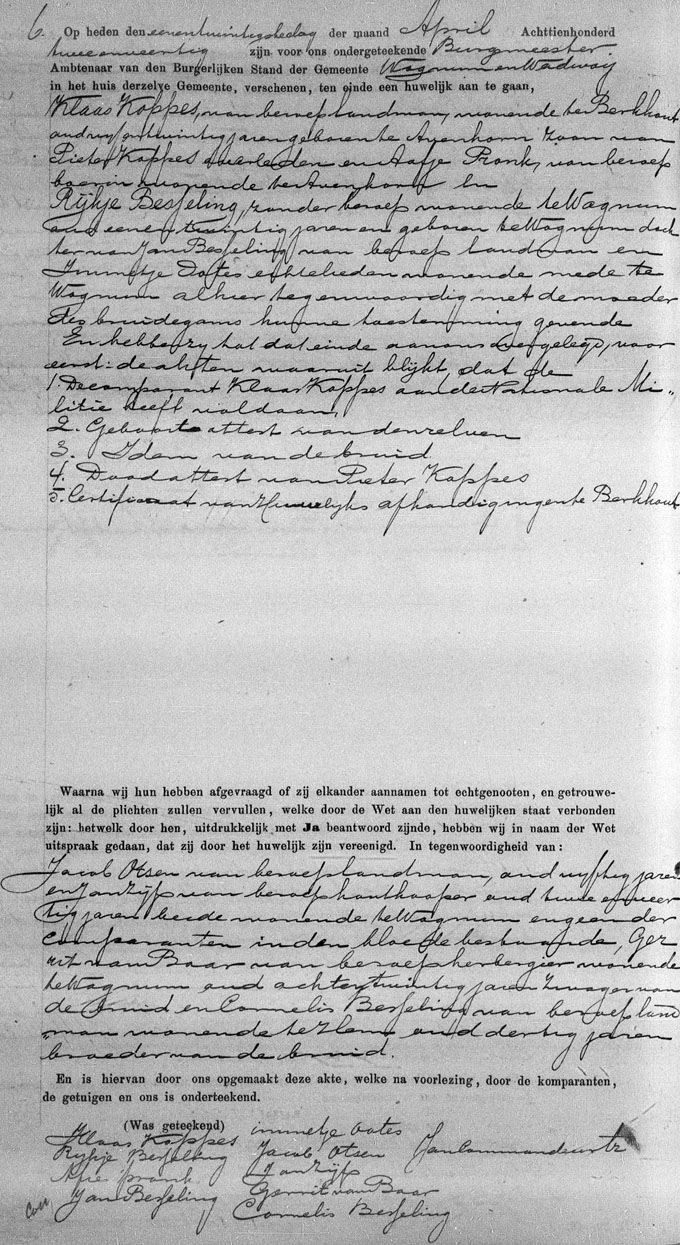 6. Op heden den eenentwintigsten dag der maand April Achttienhonderd
twee en veertig zijn voor ons ondergeteekende Burgmeester
Ambtenaar van den Burgerlijken Stand der Gemeente Wognum en Wadway
in het huis derzelve Gemeente, verschenen, ten einde een huwelijk aan te gaan,
Klaas Koppes, van beroep landman, wonende te Berkhout
oud vyfentwintig jaren geboren te Avenhorn zoon van
Pieter Koppes overleden en Aafje Pronk, van beroep
boerin wonende te Avenhorn En
Rijkje Besseling, zonder beroep wonende te Wognum
oud eenentwintig jaren en geboren te Wognum doch
ter van Jan Besseling van beroep landman en
Immetje Ootes echtelieden wonende mede te
Wognum alhier tegenwoordig met de moeder
des bruidegoms hunne toestemming gevende
En hebben zy tot dat einde aan ons overgelegd, voor
eerst: de akten waaruit blijkt, dat de
1. De comparant Klaas Koppes aan de Nationale Mi-
litie heeft voldaan,
2. Geboorte attest van denzelven
3. Idem van de bruid
4. Dood attest van Pieter Koppes
5. Certificaat van Huwelijks afkondigingen te Berkhout
Waarna wij hun hebben afgevraagd of zij elkander aannamen tot echtgenooten, en getrouwe-
lijk al de plichten zullen vervullen, welke door de Wet aan den huwelijken staat verbonden
zijn: hetwelk door hen, uitdrukkelijk met Ja beantwoord zijnde, hebben wij in naam der Wet
uitspraak gedaan, dat zij door het huwelijk zijn vereenigd. In tegenwoordigheid van:
Jacob Otsen van beroep landman, oud vyftig jaren
en Jan Zijp van beroep houtkooper oud twee en veer
tig jaren beide wonende te Wognum en geen der
comparanten in den bloede bestaande, Ger
rit van Baar van beroep herbergier wonende
te Wognum oud achtentwintig jaren zwager van
de bruid en Cornelis Besseling van beroep land
man wonende te Hem oud dertig jaren
broeder van de bruid.
En is hiervan door ons opgemaakt deze akte, welke na voorlezing, door de komparanten,
de getuigen en ons is onderteekend.
(Was geteekend)
Klaas Koppes immetje ootes
Rijkje Besseling Jacob Otsen Jan Commandeur Tz
Afie pronk Jan Zijp
Jan Besseling Gerrit van Baar
Cornelis Besseling